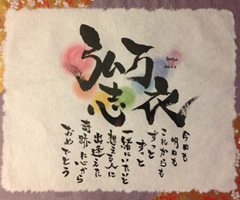 今日も
明日も
これからも
ずっと
ずっと
一緒にいたいと
想える人に
出逢えた
奇跡に心から
おめでとう